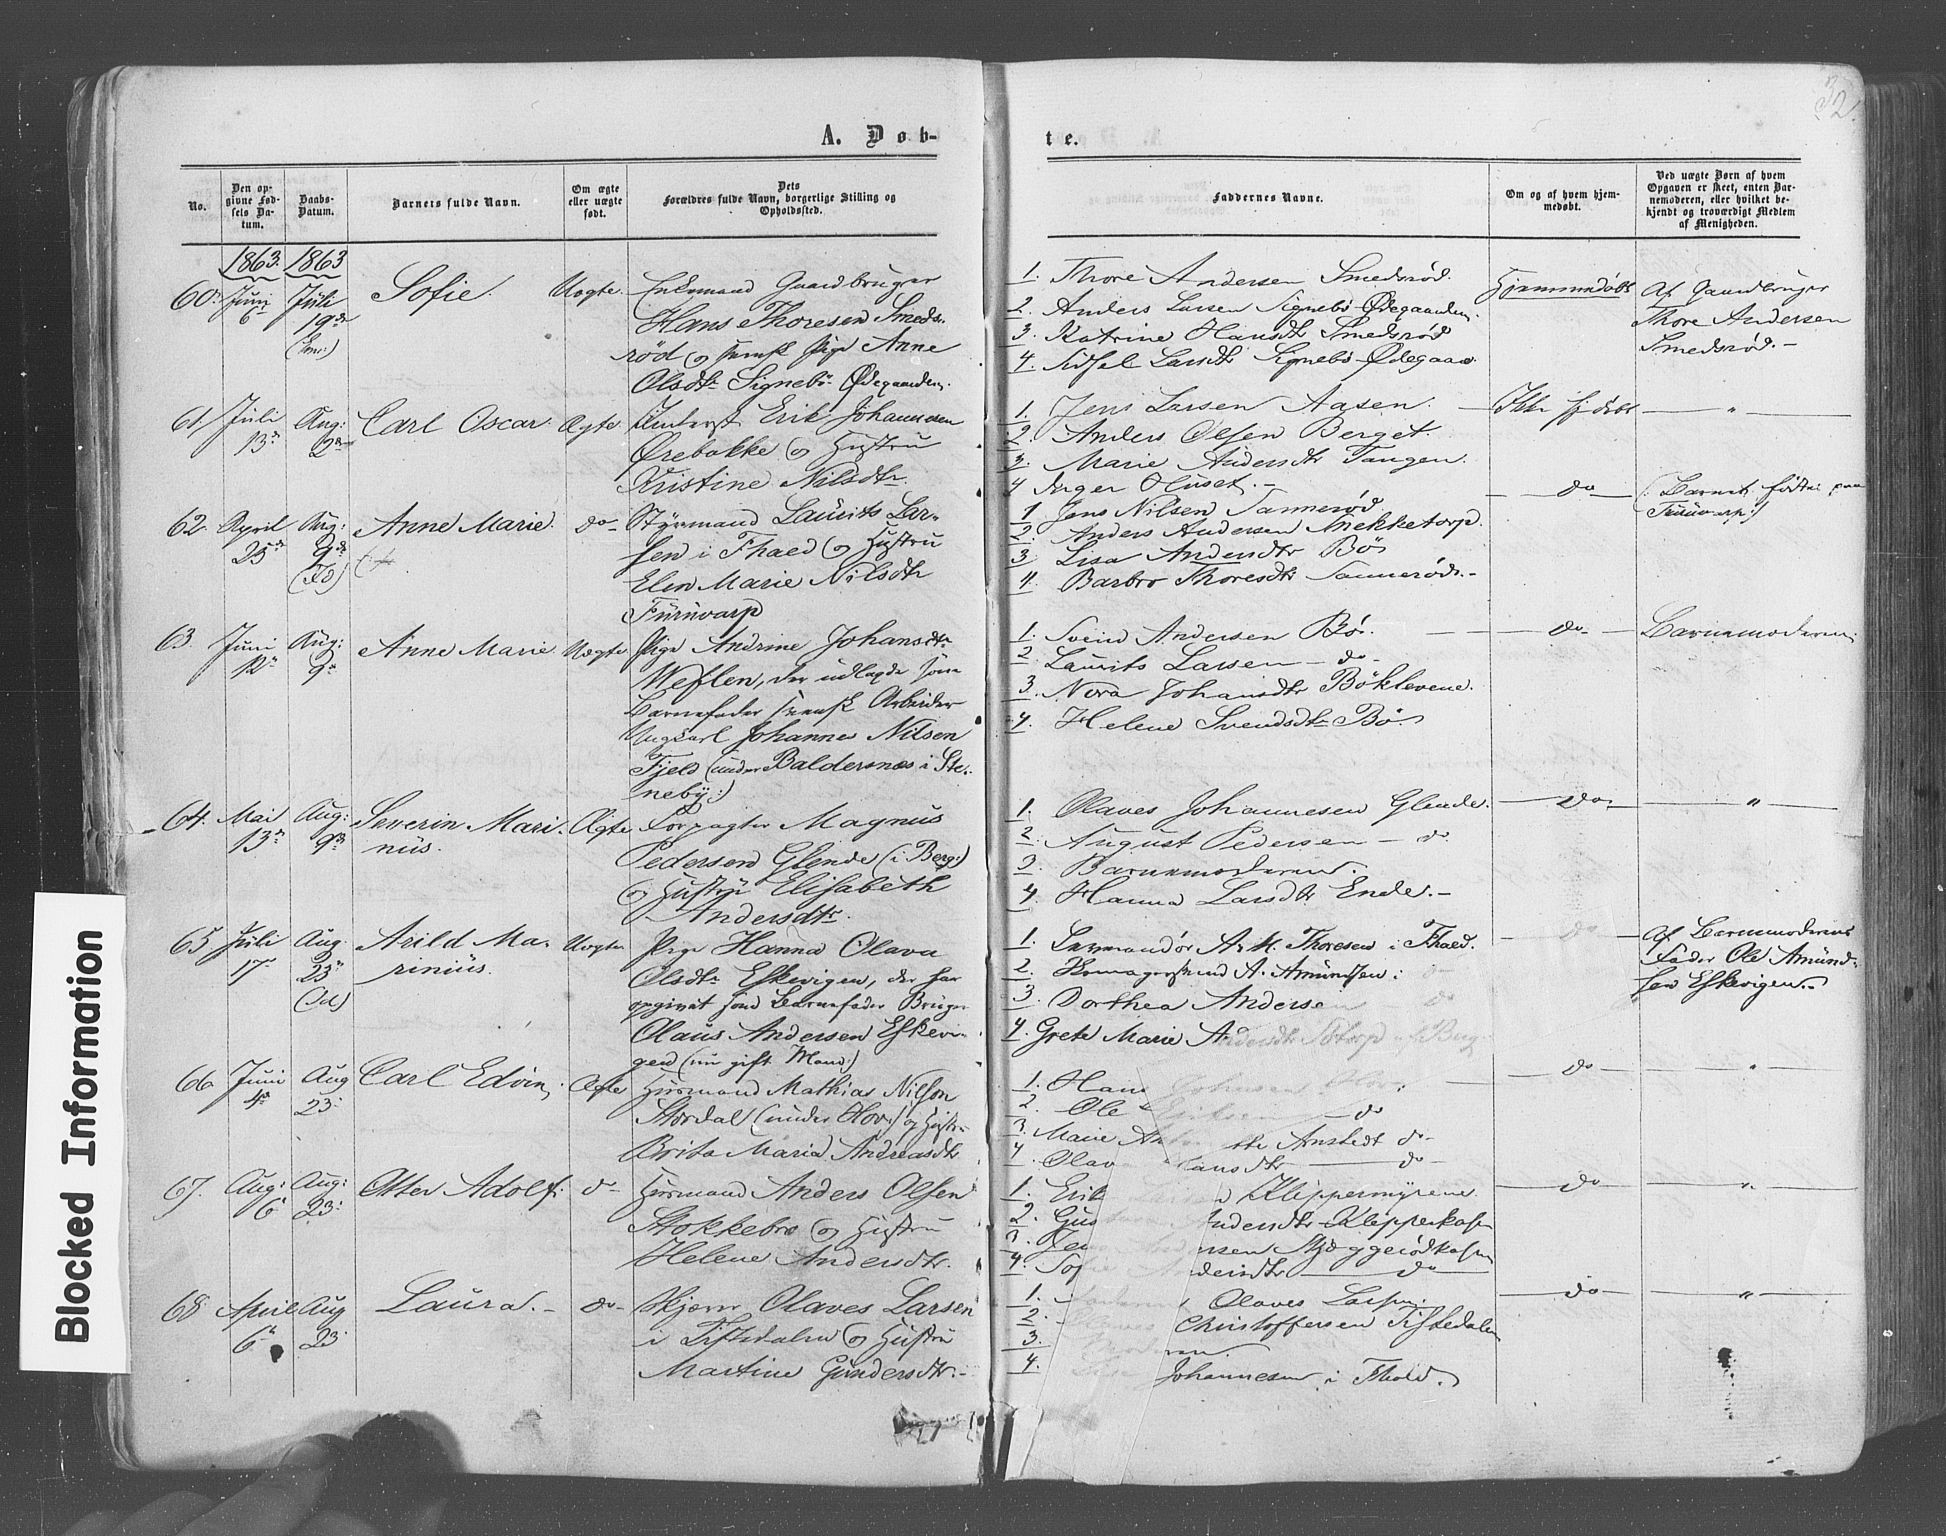 32.
A. Døb-
te.
No.
Den op-
givne Fød-
sels Da-
tum.
Daabs-
Datum.
Barnets fulde Navn.
Om ægte
eller uægte
født.
Dets
Forældres fulde Navn, borgerlige Stilling og
Opholdssted.
Faddernes Navne.
Om og af hvem hjem-
medøbt.
Ved uægte Børn af hvem
Opgaven er skeet, enten Bar-
nemoderen, eller hvilket be-
kjendt og troværdigt Medlem
af Menigheden.
1863. 1863
60. Juni 6 Juli 19de Sofie. Uægte. Enkemand Gaardbruger
Hans Thoresen Smeds-
rød og svensk Pige Anne
Olsdtr Signebö Ødegaarden.
1. Thore Andersen Smedsrød.
2. Anders Larsen Signebö Ødegaarden.
3. Katrine Hansdtr Smedsrød
4. Sidsel Larsdtr Signebö Ødegaard
Hjemmedøbt
Af Gaardbruger
Thore Andersen
Smedsrød.-
61. Juli 13 Aug: 2 Carl Oscar. Ægte. Erik Johannesen
Ørebakke og Hustru
Kristine Nilsdtr.
1. Jens Larsen Aasen.
2. Anders Olsen Berget.
3. Marie Andersdtr Tangen.
4 Inger Huset.-
Ikke hjdøbt - "
62. April 25 Aug: 9 Anne Marie. do- Styrmand Laurits Lar-
sen i Fhald og Hustru
Elen Marie Nilsdtr
Furuvarp
1 Jens Nilsen Sannerød.
2. Anders Andersen Snekketorp.
3 Lisa Andersdtr Bö
4. Barbro Thoresdtr Sannerød.-
do
(: Barnet födt paa
Furuvarp:)
63. Juni 12 Aug: 9 Anne Marie Uægte Pige Andrine Johansdtr
Weflen, der udlagde som
Barnefader svensk Arbeider
Ungkarl Johannes Nilsen
Fjeld (under Baldersnæs i Ste-
neby:)
1. Svend Andersen Bö.
2. Laurits Larsen - do -
3. Nora Johansdtr Böklevene.
4. Helene Svendsdtr Bö.
do-
Barnemoderen.
64. Mai 13 Aug: 9 Severin Mari-
nus. Ægte Forpagter Magnus
Pedersen Glende (i Berg:)
og Hustru Elisabeth
Andersdtr.
1. Olaves Johannesen Glende.
2. August Pedersen - do
3. Barnemoderen.
4. Hanna Larsdtr Ende.-
do- "
65 Juli 17 Aug 23 Arild Ma-
rinius. Uægte Pige Hanna Olava
Olsdtr Eskevigen, der har
opgivet som Barnefader Bruger
Olaus Andersen Eskevi-
gen (nu gift Mand:)
1. A. M. Thoresen i Fhald.
2. A. Amundsen i do
3. Dorthea Andersen do
4. Grete Marie Andersdtr
do
Af Barnemoderens
Fader Ole Amund-
sen Eskevigen.-
66 Juni 4 Aug 23 Carl Edvin. Ægte Husmand Mathias Nilsen
Stordal (under Hov:) og Hustru
Brita Maria Andreasdtr
1. Hans Johnsen
2. Ole - do
3. Marie Arnstedt do-
4. Olava Hansdtr - do-
do "
67. Aug: 6 Aug: 23 Otter Adolf. do- Husmand Anders Olsen
Stokkebro og Hustru
Helene Andersdtr.
1. Erik Klippermyrene
2. Andersdtr Klipperkasen
3. Jens Andersen
4. Sofie Andersdtr - do
do "
68 April 6 Aug 23 Laura.- do- Olaves Larsen
i Tistedalen og Hustru
Martine Gundersdtr.-
1. Olaves Larsen.
2. Christoffersen Tistedalen
3.
4. Johannesen i Fhald.
do "
Blocked Information